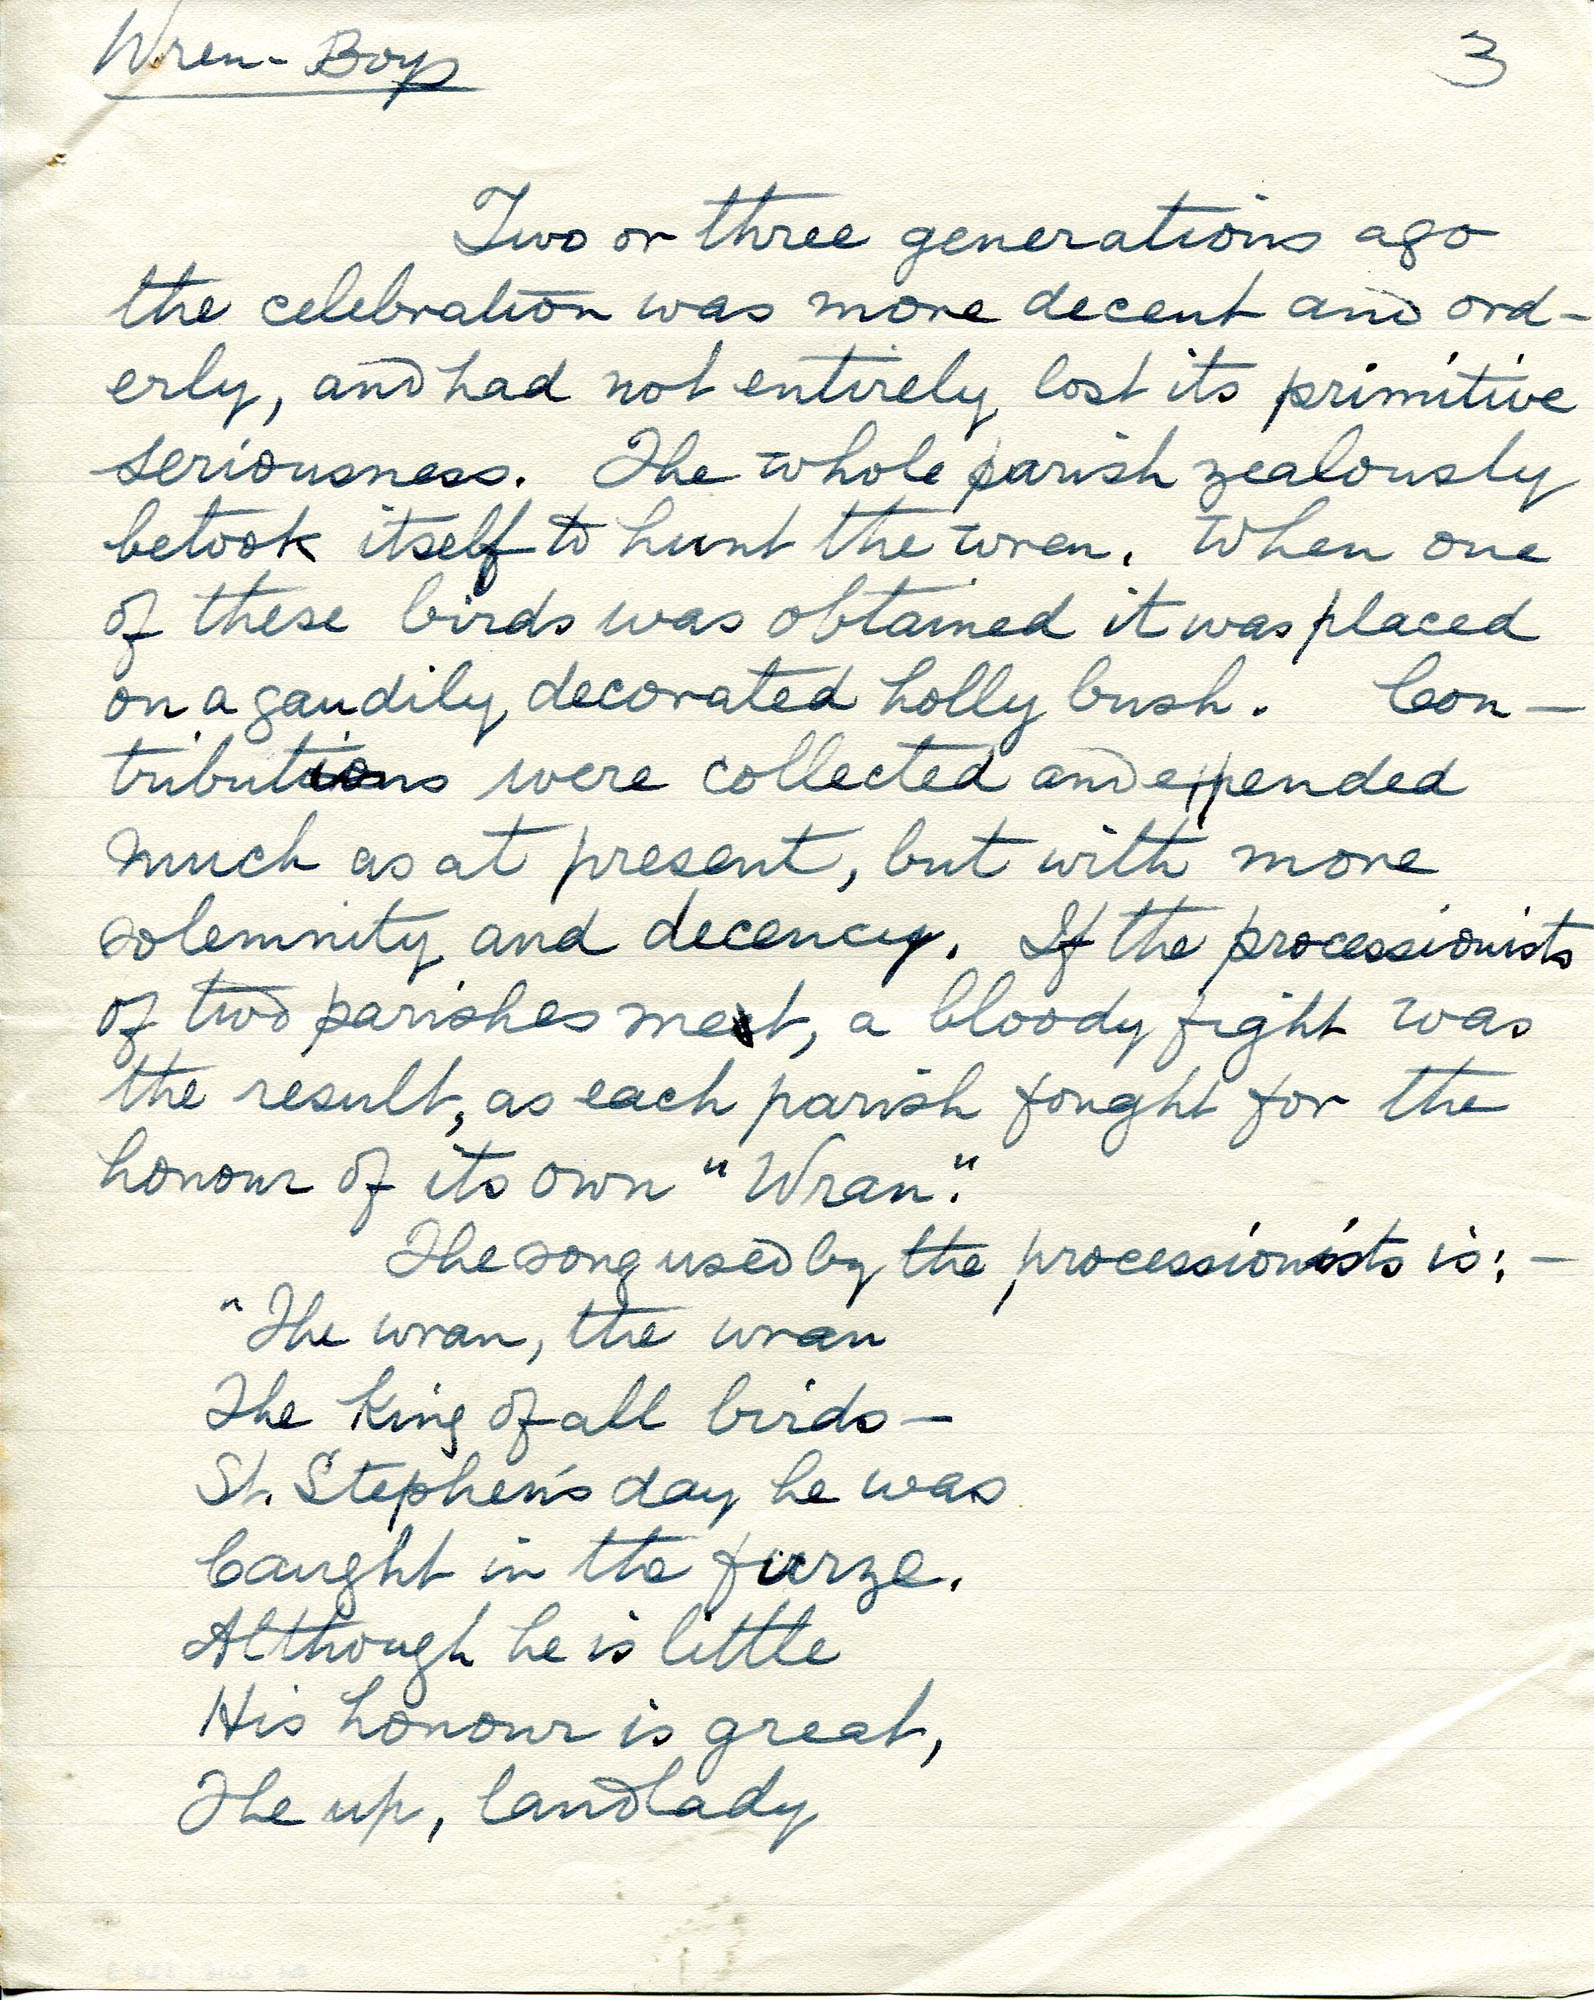 Wren-Boys 3
Two or three generations ago
the celebration was more decent and ord-
erly, and had not entirely lost its primitive
seriousness. The whole parish zealously
betook itself to hunt the wren. When one
of these birds was obtained it was placed
on a gaudily decorated holly bush. Con-
tributions were collected and expended
much as at present, but with more
solemnity and decency. If the processionists
of two parishes met, a bloody fight was
the result, as each parish fought for the
honour of its own "Wran".
The song used by the processionists is:-
"The wran, the wran
The King of all birds-
St. Stephen's day he was
Caught in the furze.
Although he is little
His honour is great,
The up, landlady